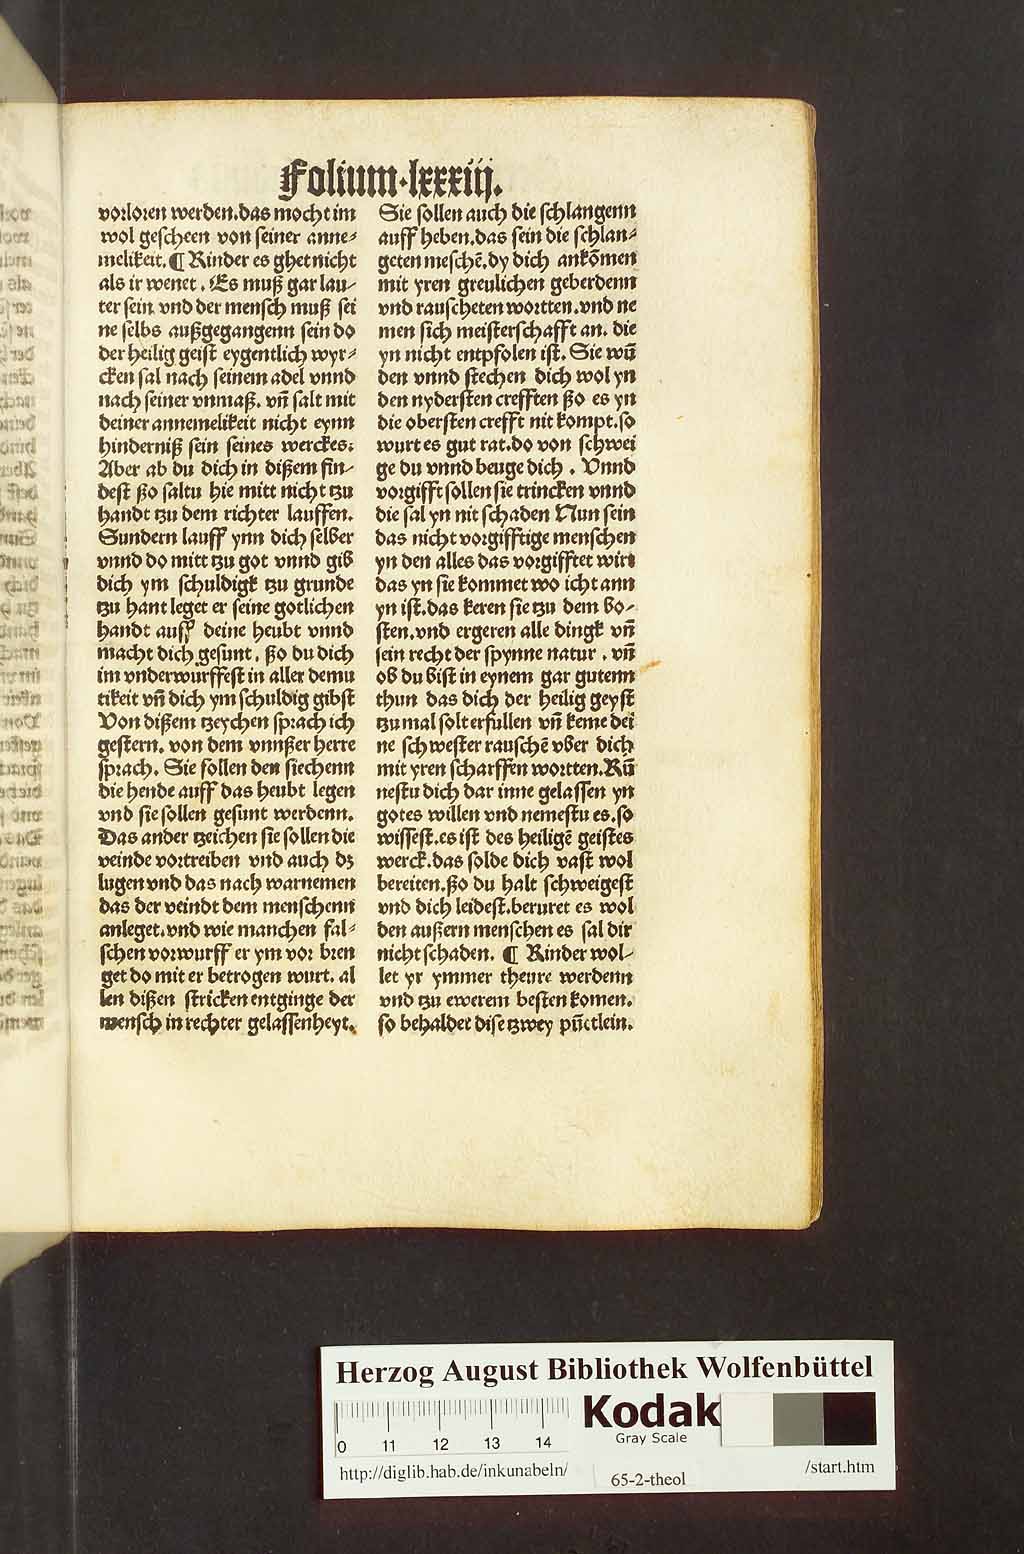 Folium·lxxxiij.
vorloren werden.das mocht im
wol gescheen von seiner anne⸗
melikeit.¶ Kinder es ghet nicht
als ir wenet . Es muß gar lau⸗
ter sein. vnd der mensch muß sei
ne selbs außgegangenn sein do
der heilig geist eygentlich wyr⸗
cken sal nach seinem adel vnnd
nach seiner vnmaß. vn̄ salt mit
deiner annemelikeit nicht eynn
hinderniß sein seines werckes:
Aber ab du dich in dißem fin⸗
dest ßo saltu hie mitt nicht tzu
handt tzu dem richter lauffen.
Sundern lauff ynn dich selber
vnnd do mitt tzu got vnnd gib
dich ym schuldigk tzu grunde
tzu hant leget er seine gotlichen
handt auff deine heubt vnnd
macht dich gesunt . ßo du dich
im vnderwurffest in aller demu
tikeit vn̄ dich ym schuldig gibst
Von dißem tzeychen sprach ich
gestern. von dem vnnßer herre
sprach. Sie sollen den siechenn
die hende auff das heubt legen
vnd sie sollen gesunt werdenn.
Das ander tzeichen sie sollen die
veinde vortreiben vnd auch dz
lugen vnd das nach warnemen
das der veindt dem menschenn
anleget.vnd wie manchen fal⸗
schen vorwurff er ym vor bren
get do mit er betrogen wurt. al
len dißen stricken entginge der
mensch in rechter gelassenheyt.
Sie sollen auch die schlangenn
auff heben.das sein die schlan⸗
geten meschē.dy dich ankōmen
mit yren greulichen geberdenn
vnd rauscheten wortten.vnd ne
men sich meisterschafft an. die
yn nicht entpfolen ist. Sie wū
den vnnd stechen dich wol yn
den nydersten crefften ßo es yn
die obersten crefft nit kompt.so
wurt es gut rat.do von schwei
ge du vnnd beuge dich . Vnnd
vorgifft sollen sie trincken vnnd
die sal yn nit schaden Nun sein
das nicht vorgifftige menschen
yn den alles das vorgifftet wirt
das yn sie kommet wo icht ann
yn ist.das keren sie tzu dem bo⸗
sten.vnd ergeren alle dingk vn̄
sein recht der spynne natur . vn̄
ob du bist in eynem gar gutenn
thun das dich der heilig geyst
tzu mal solt erfullen vn̄ keme dei
ne schwester rauschē vber dich
mit yren scharffen wortten.Kū
nestu dich dar inne gelassen yn
gotes willen vnd nemestu es.so
wissest.es ist des heiligē geistes
werck.das solde dich vast wol
bereiten.ßo du halt schweigest
vnd dich leidest.beruret es wol
den außern menschen es sal dir
nicht schaden. ¶ Kinder wol⸗
let yr ymmer theure werdenn
vnd tzu ewerem besten komen.
so behaldet dise tzwey pūctlein.
Herzog August Bibliothek Wolfenbüttel
0 11 12 13 14
Kodak
Gray Scale
http://diglib.hab.de/inkunabeln/
65-2-theol
/start.htm